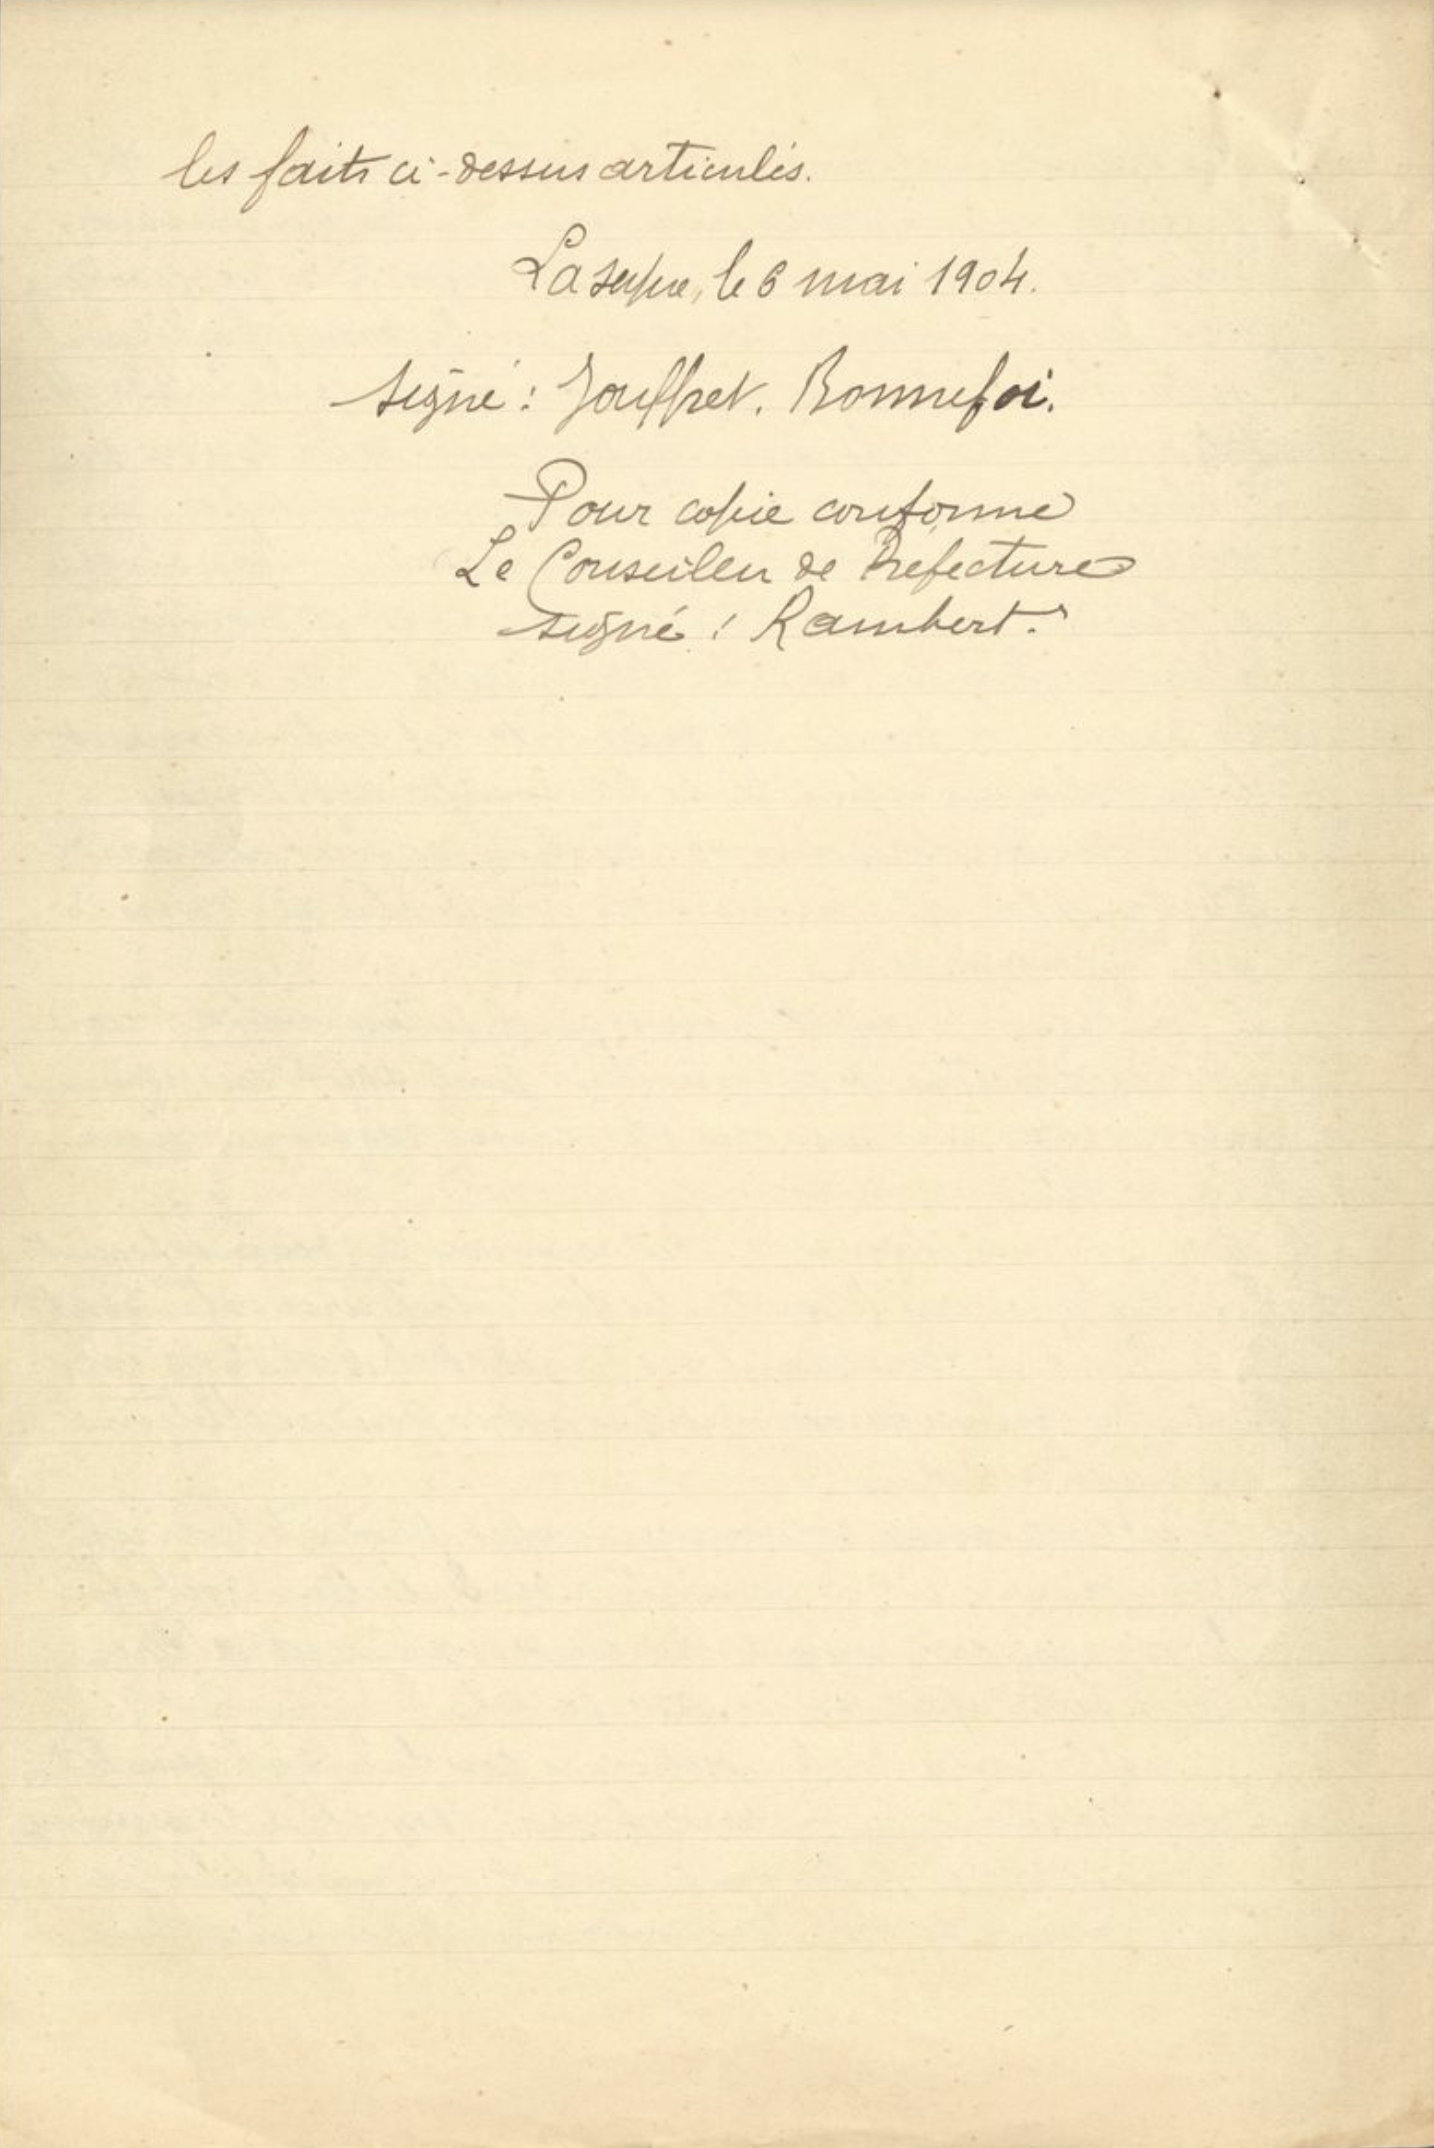 les faits ci-dessus articulés.
La Serpe, le 6 mai 1904.
signé : Jouffret. Bonnefoi.
Pour copie conforme
Le Conseiller de Préfecture
signé : Rambert.